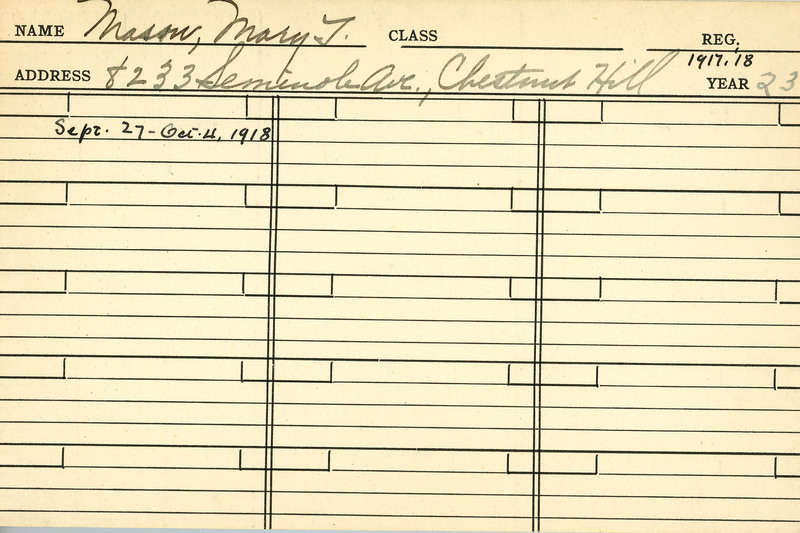 NAME Mason, Mary T. CLASS REG.
1917.18
ADDRESS 8233 Seminole Ave., Chestnut Hill YEAR 23
Sept. 27-Oct. 4, 1918